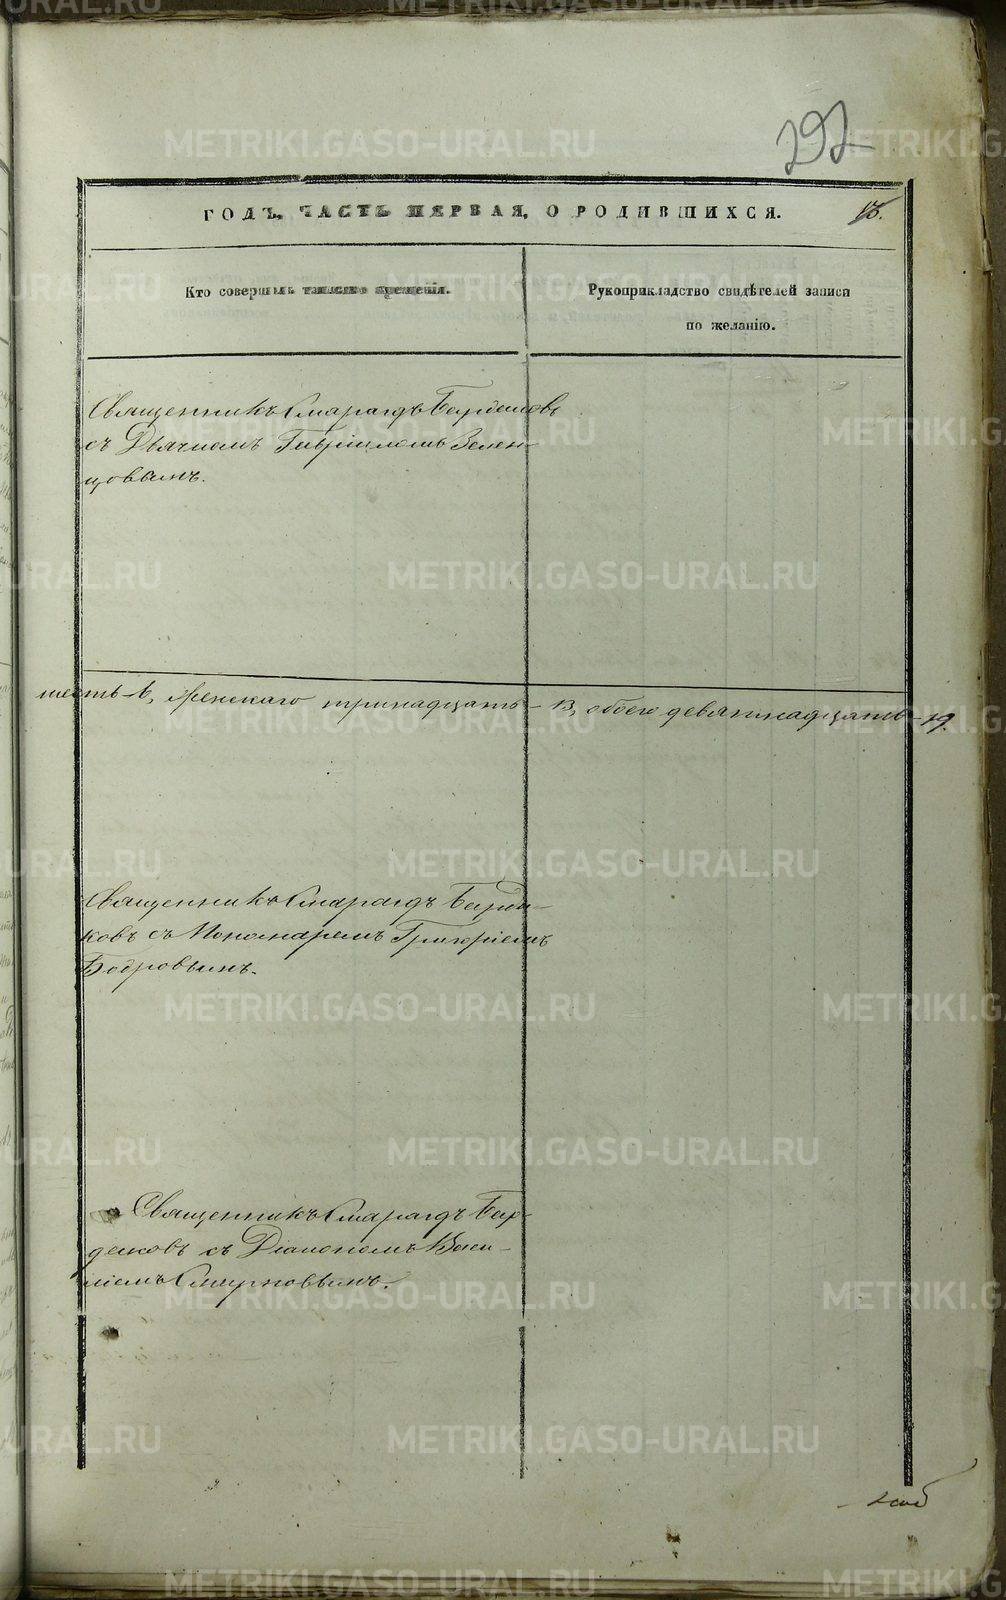 292
ГОДЪ, ЧАСТЬ ПЕРВАЯ, О РОДИВШИХСЯ.
Кто совершалъ таинство крещенія.
Рукоприкладство свидѣтелей записи
по желанію.
Священникъ Смарагдъ Бирдюковъ
съ Дьячкомъ Гавріиломъ Зелен-
цовымъ.
шесть - 6, Женскаго тринадцать - 13, обоего девятнадцать - 19.
Священникъ Смарагдъ
ковъ съ Пономаремъ Григоріемъ
Бобровымъ.
Священникъ Смарагдъ
съ Діакономъ Васи-
ліемъ Смирновымъ.
METRIKI.GASO-URAL.RU